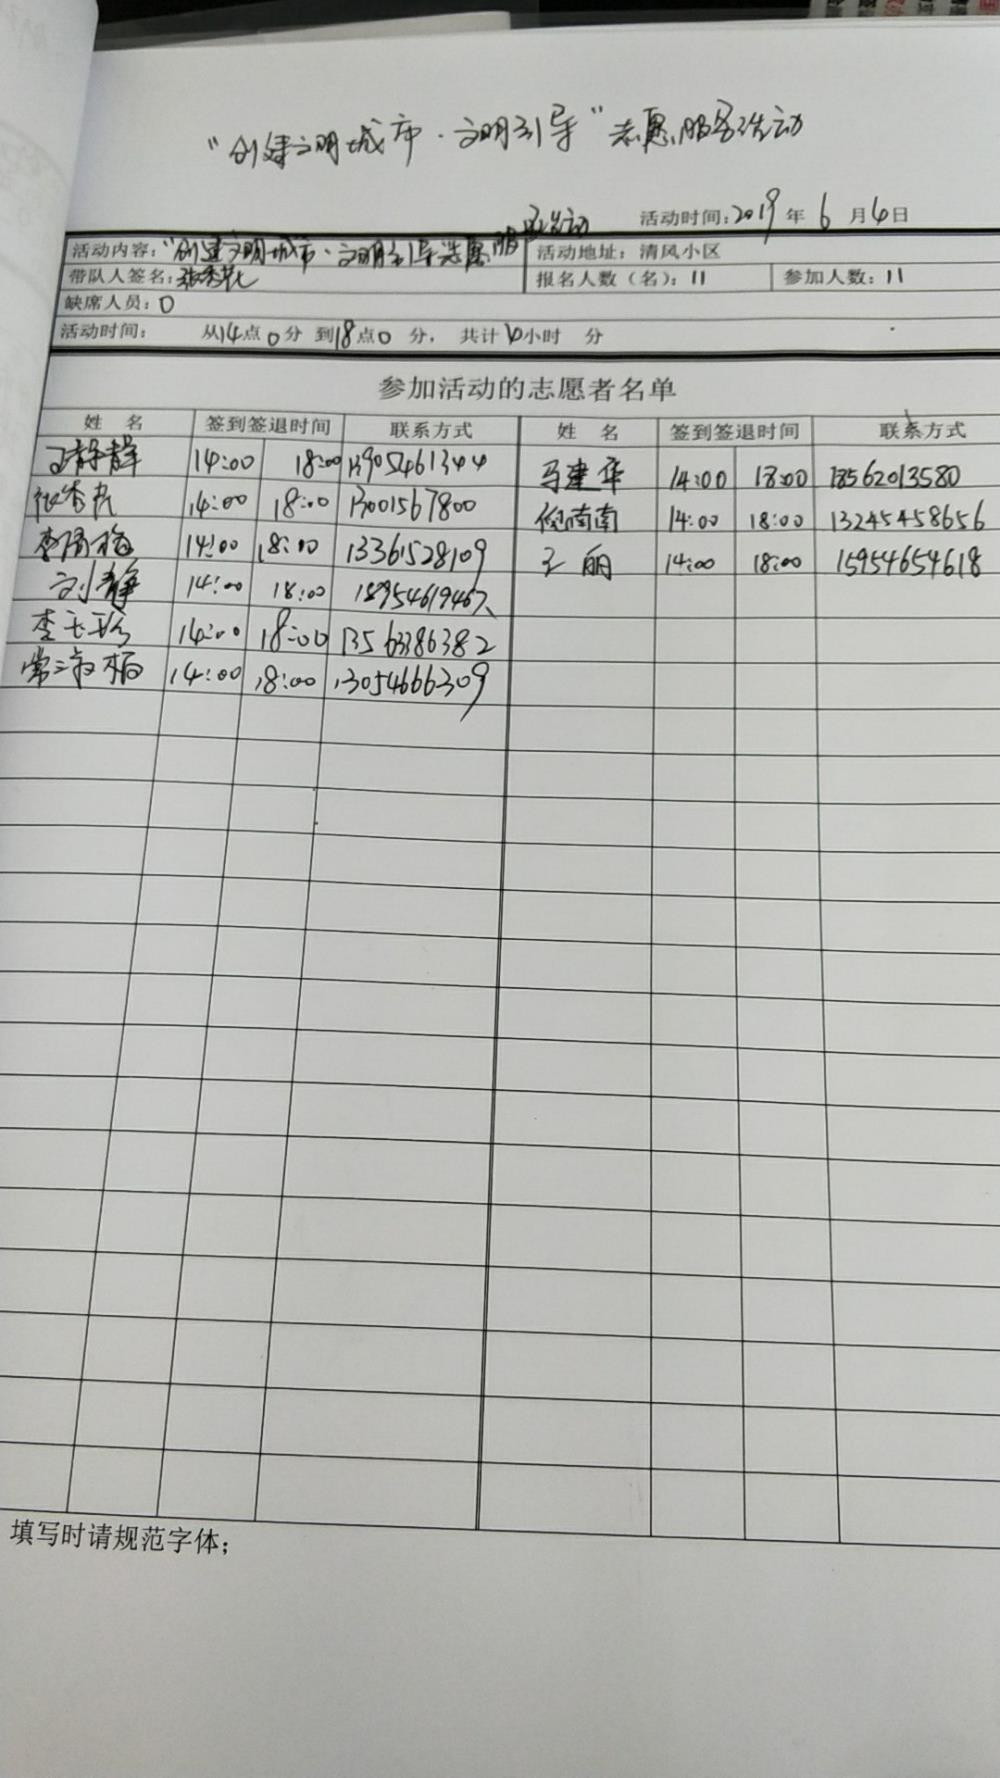 “创建文明城市·文明引导”志愿服务活动
活动时间:2019年6月4日
活动内容:“创建文明城市·文明引导志愿服务活动
活动地址:清风小区
带队人签名:张秀花
报名人数(名):11
参加人数:11
缺席人员:0
活动时间: 从14点0分 到18点0 分, 共计4小时 分
参加活动的志愿者名单
姓 名 签到签退时间 联系方式 姓 名 签到签退时间 联系方式
王静静 14:00 18:00 13905461344 马建华 14:00 18:00 18562013580
张秀花 14:00 18:00 13001567800 倪南南 14:00 18:00 13245458656
14:00 18:00 13361528109 王丽 14:00 18:00 15954654618
刘静 14:00 18:00 18954619467
李玉珍 14:00 18:00 13563386382
常淑梅 14:00 18:00 13054666309
填写时请规范字体;